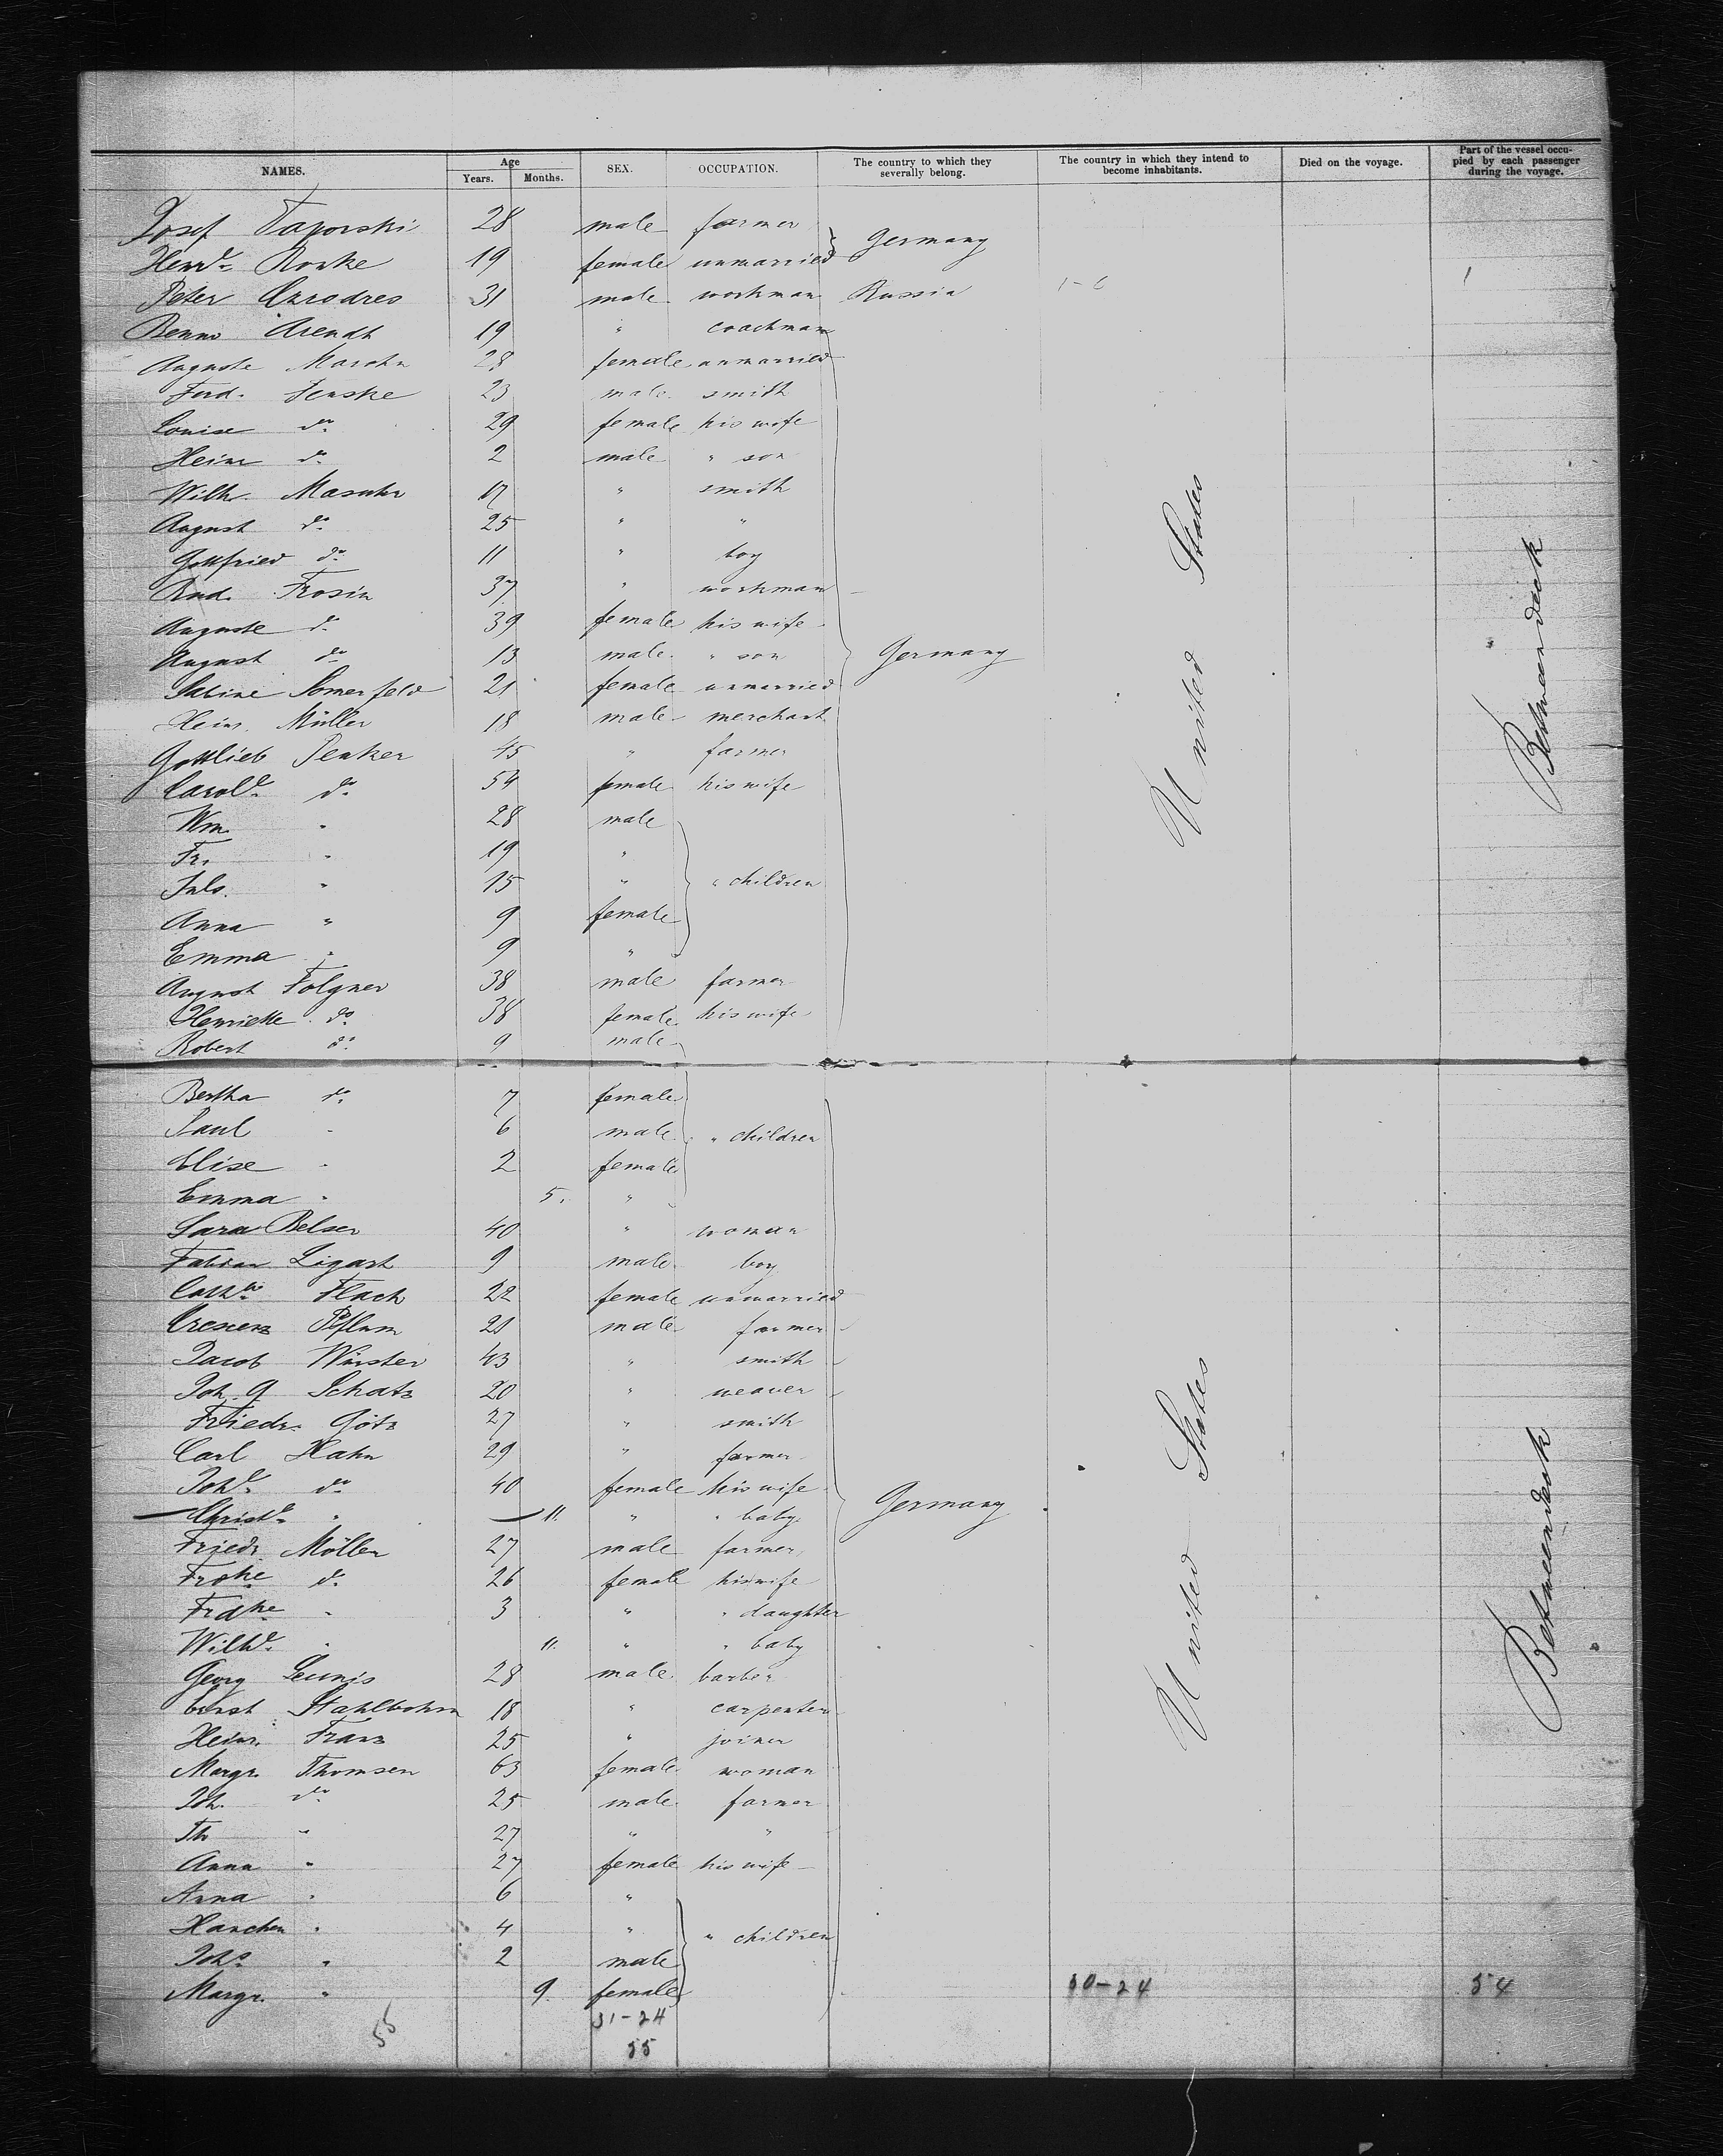 NAMES. Age Years. Months. SEX. OCCUPATION. The country to which they severally belong. The country in which they intend to become inhabitants. Died on the voyage. Part of the vessel occupied by each passenger during the voyage.
Josef Taporski 28 male farmer Germany
Henrd. Ronke 19 female unmarried
Peter 31 male workman Russia 1-0 1
Benno Arendt 19 " coachman
Auguste Marohn 28 female unmarried
Ferd. Jenske 23 male smith
Louise do 29 female his wife
Heinr do 2 male " son
Wilh. Masuhr 17 " smith
August do 25 " "
Gottfried do 11 " boy
Rud. Frosin 37 " workman
Auguste do 39 female his wife
August do 13 male " son Germany
Sabine Somerfeld 21 female unmarried
Heinr. Müller 18 male merchant
Gottlieb Penker 45 " farmer
Carole. do 54 female his wife
Wm. " 28 male
Fr. " 19 "
Juls. " 15 " " children
Anna " 9 female
Emma " 9 "
August Folgner 38 male farmer
Henriette do 38 female his wife
Robert do 9 male
United States
Betweendeck
Bertha do 7 female
Paul " 6 male " children
Elise " 2 female
Emma " 5. "
Sara Belser 40 " woman
Fabian Ligart 9 male boy
Cathne Flach 22 female unmarried
Crescenz Pflum 21 male farmer
Jacob Würster 43 " smith
Joh. G Schatz 20 " weaver
Friedr. Götz 27 " smith
Carl Hahn 29 " farmer
Johe. do 40 female his wife Germany
Christe. " 11. " " baby
Friedr. Möller 27 male farmer
Frdke do 26 female his wife
Frdke " 3 " " daughter
Wilhe. " 11. " " baby
Georg Leunis 28 male barber
Ernst Stahlbohm 18 " carpenter
Heinr. Franz 25 " joiner
Margr. Thomsen 63 female woman
Joh. do 25 male farmer
Th " 27 " "
Anna " 27 female his wife
Anna " 6 "
Hanchen " 4 " " children
Johs " 2 male
Margr. " 9. female 30-24 54
United States
Betweendeck
55 31-24
55